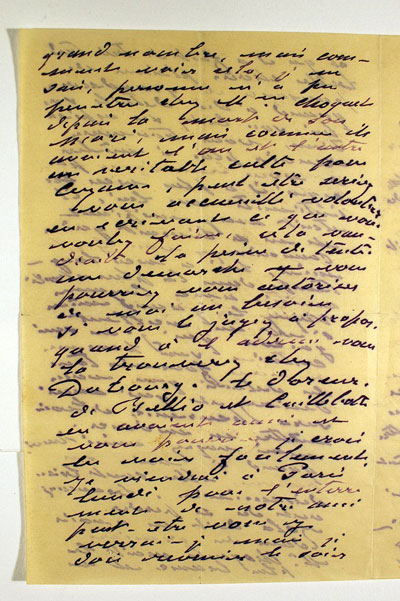 grand nombre, mais com-
ment voir cela, je ne
sais, personne n'a pu
pénétrer chez Me Choquet
depuis la mort de son
mari, mais comme ils
avaient l'un et l'autre
un véritable culte pour
Cezanne peut être seriez
vous accueilli volontiers
en écrivant ce que vous
voulez faire, cela vau-
drait la peine de tenter
une démarche et vous
pourriez vous autoriser
de moi au besoin
si vous le jugez à propos.
quand à l'adresse vous
la trouverez chez
le doreur.
de Bellio et Caillebotte
en avaient aussi et
vous pourrez je crois
les voir facilement.
Je viendrai à Paris
lundi pour l'enterre
ment de notre ami
peut-être vous y
verrai-je mais je
dois revenir le soir